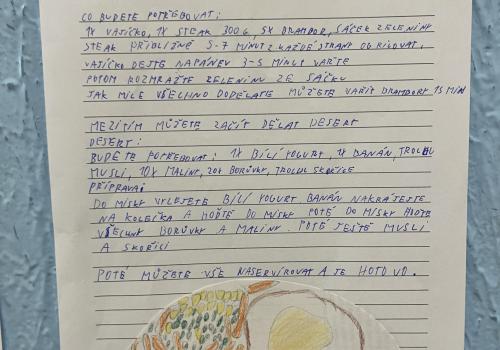 CO BUDETE POTŘEBOVAT:
1X VAJÍČKO, 1X STEAK 300G, 5X BRAMBOR, SÁČEK ZELENINY
STEAK PŘIBLIŽNĚ 5-7 MINUT Z KAŽDÉ STRANY OGRILOVAT,
VAJÍČKO DEJTE NA PÁNEV 3-5 MINUT VAŘTE
POTOM ROZMRAŽTE ZELENINU ZE SÁČKU
JAK MILE VŠECHNO DODĚLÁTE MŮŽETE VAŘIT BRAMBORY 15 MIN
MEZITÍM MŮŽETE ZAČÍT DĚLAT DESERT
DESERT:
BUDETE POTŘEBOVAT: 1X BÍLÍ YOGURT, 1X BANÁN, TROCHU
MUSLI, 10X MALINY, 20X BORŮVKY, TROCHU SKOŘICE
PŘÍPRAVA:
DO MISKY VYLEJETE BÍLÍ YOGURT BANÁN NAKRÁJEJTE
NA KOLEČKA A HOĎTE DO MISKY POTÉ DO MISKY HOĎTE
VŠECHNY BORŮVKY A MALINY. POTÉ JEŠTĚ MUSLI
A SKOŘICI
POTÉ MŮŽETE VŠE NASERVÍROVAT A JE HOTOVO.